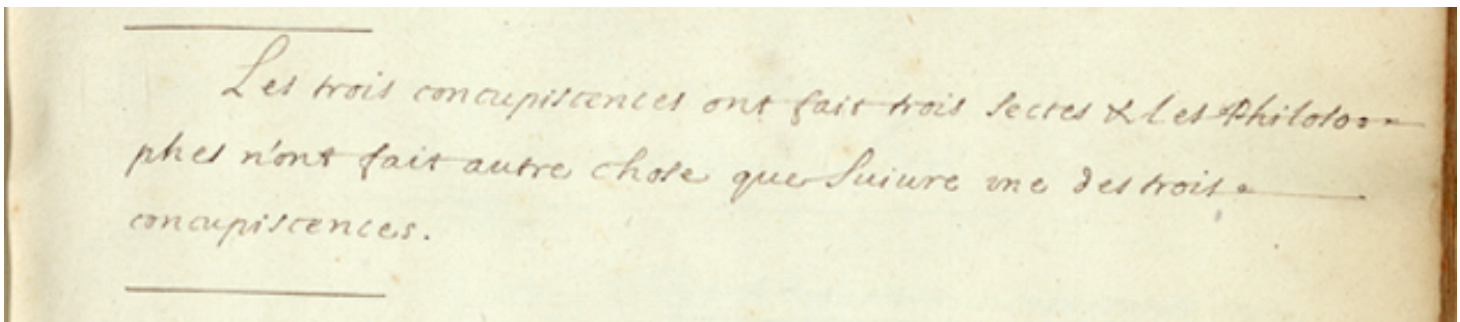 Les trois concupiscences ont fait trois sectes & les Philoso
phes n'ont fait autre chose que suiure vne des trois
concupiscences.